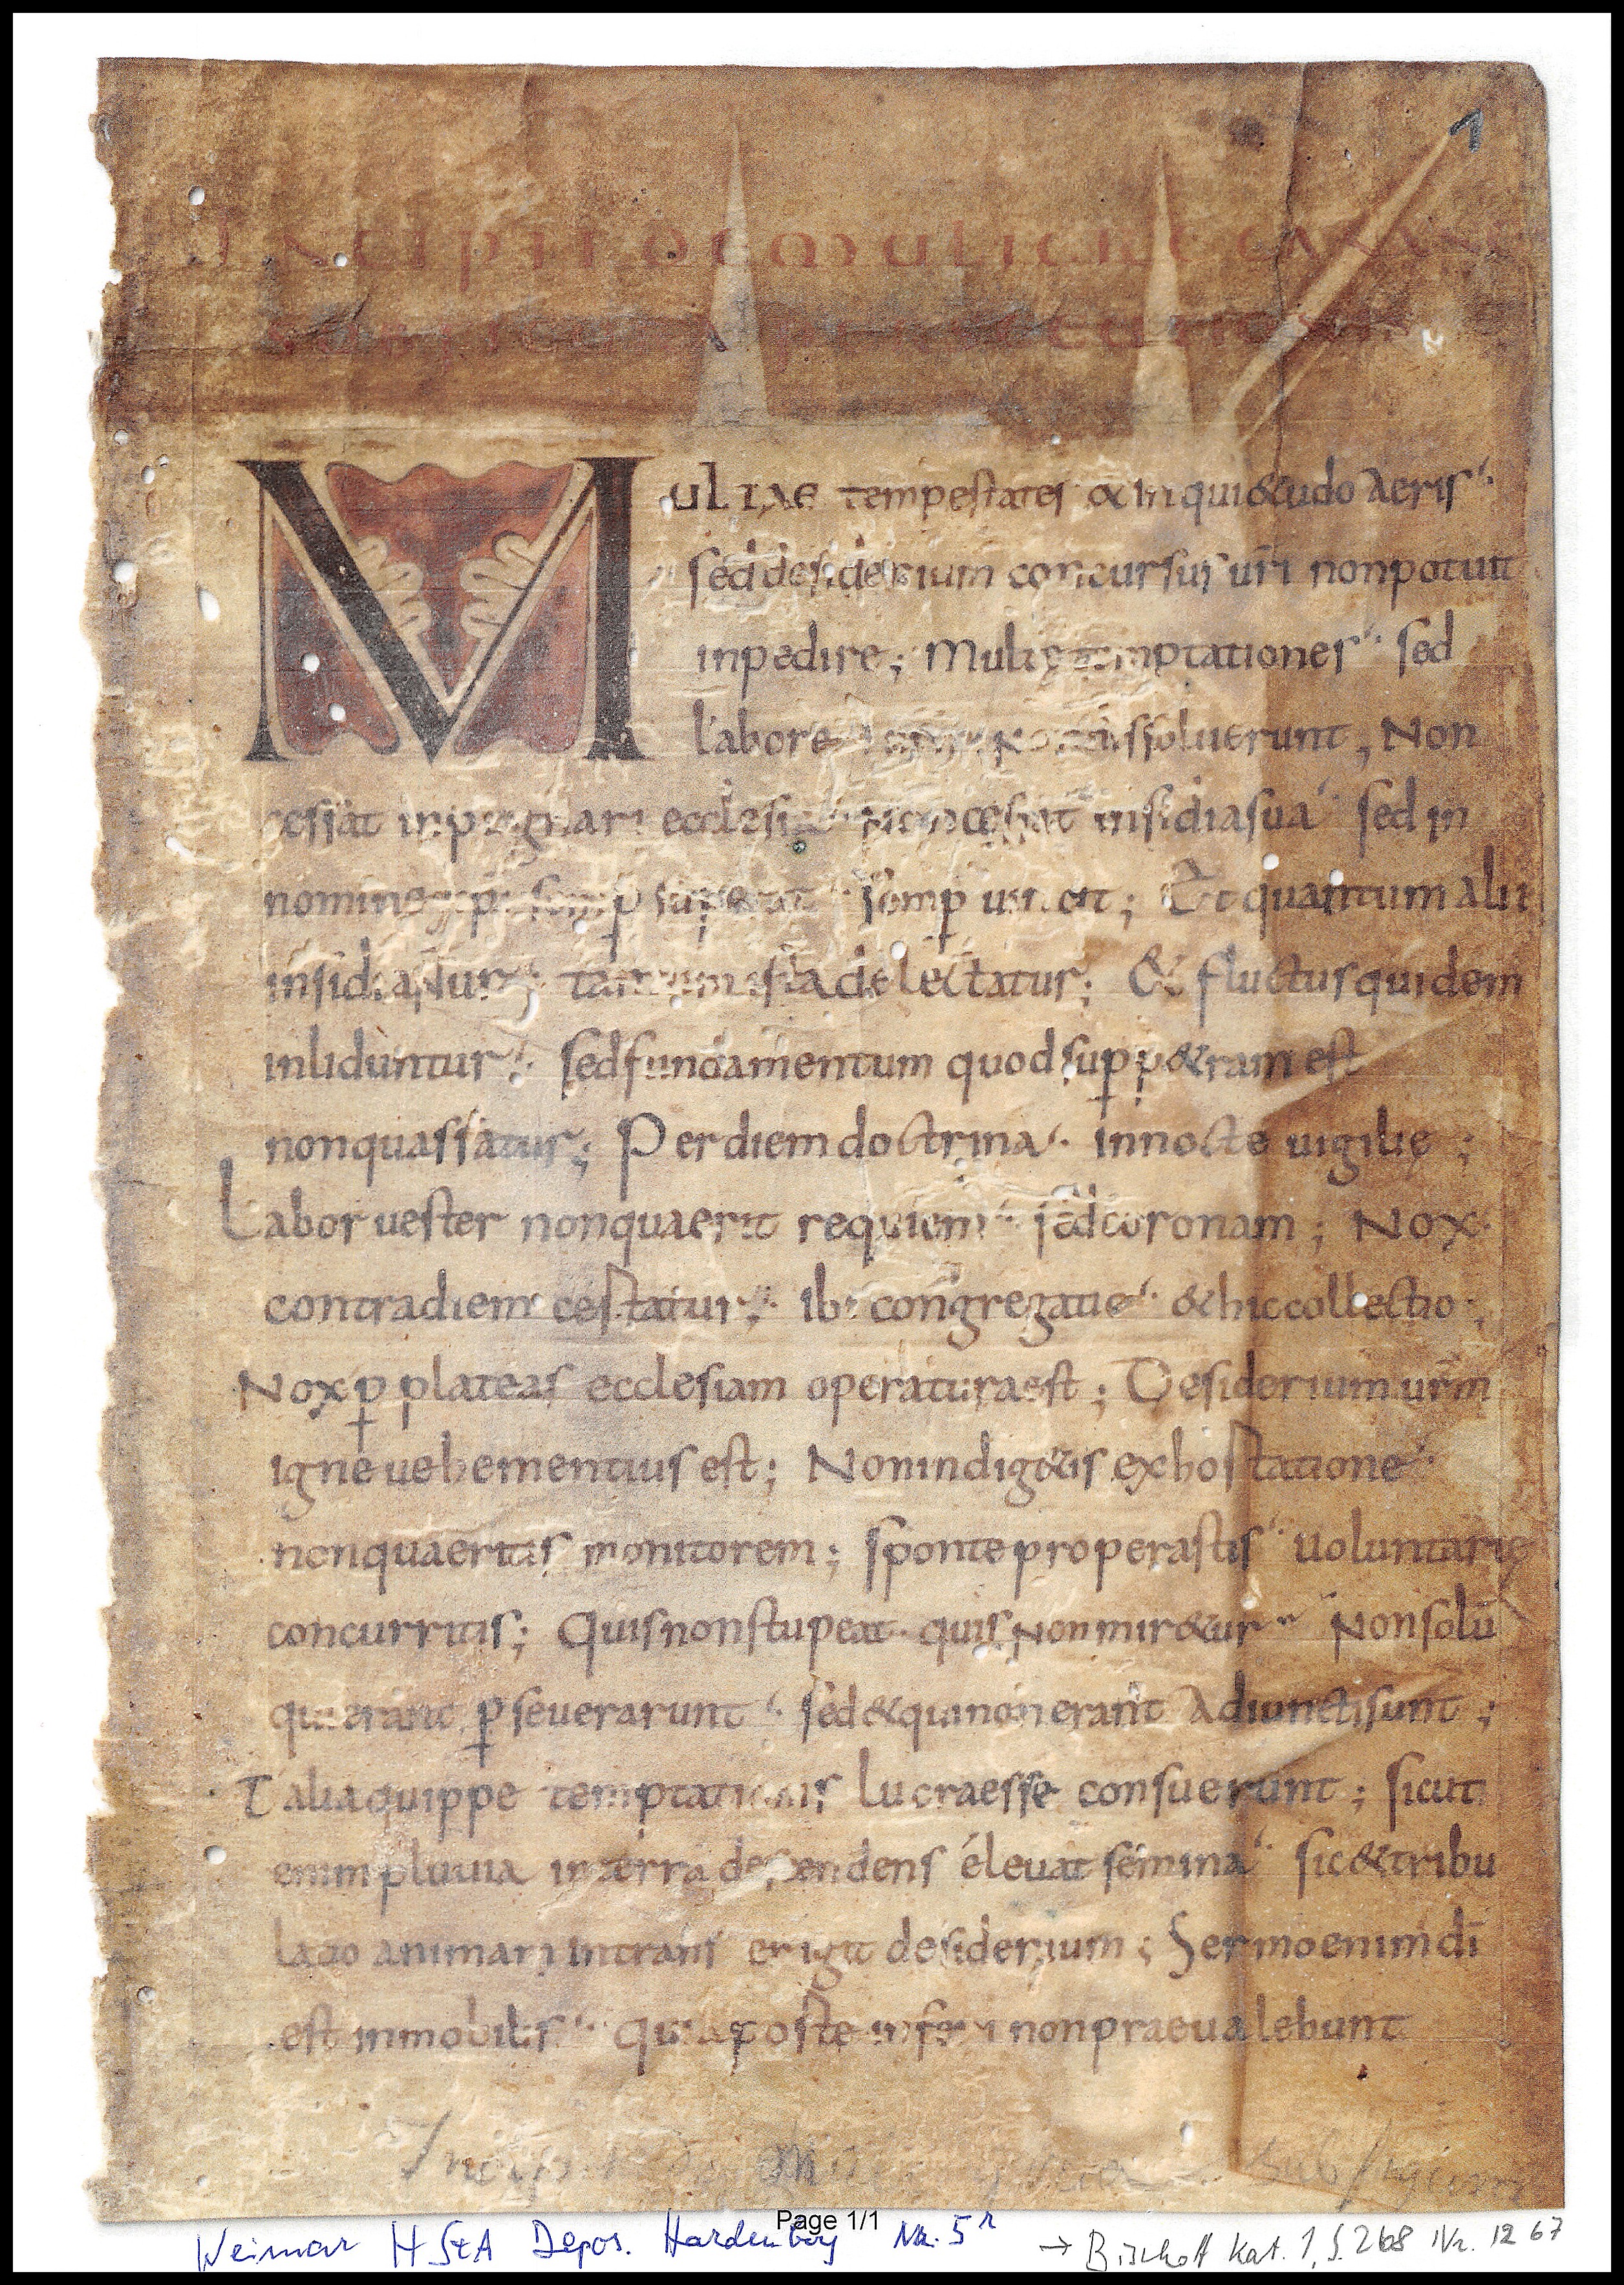 1
Incipit de muliere canane
sub figura persecutionis
Multae tempestates & inqui&udo aeris
sed desiderium concursus uri non potuit
inpedire; Multę temptationes sed
labore dissoluerunt, Non
cessat inpugnari ecclesia non cessat insidia sua sed in
nomine semp superat semp uincit; Et quantum alii
insidiantur tantum ista delectatur; & fluctus quidem
inliduntur sed fundamentum quod sup p&ram est
non quassatur; Per diem doctrina in nocte uigilię;
Labor uester non quaerit requiem sed coronam; Nox
contra diem cestatur ibi congregatio & hic collectio;
Nox p plateas ecclesiam operatura est; Desiderium urm
igne uehementius est; Non indig&is exhostatione
non quaeritis monitorem; sponte properastis uoluntarie
concurritis; Quis non stupeat quis non mir&ur Non solū
qui erant pseuerarunt sed & qui non erant adiuncti sunt;
Talia quippe temptationis lucra esse consuerunt; sicut
enim pluuia in terra descendens éleuat semina sic & tribu
latio animam intrans erigit desiderium; Sermo enim di
est inmobilis quia poste inferi non praeualebunt
sub figura
Page 1/1
Weimar HStA Depos. Hardenberg Nr. 5r
→ Bischoff Kat. 1, S. 268 Nr. 1267